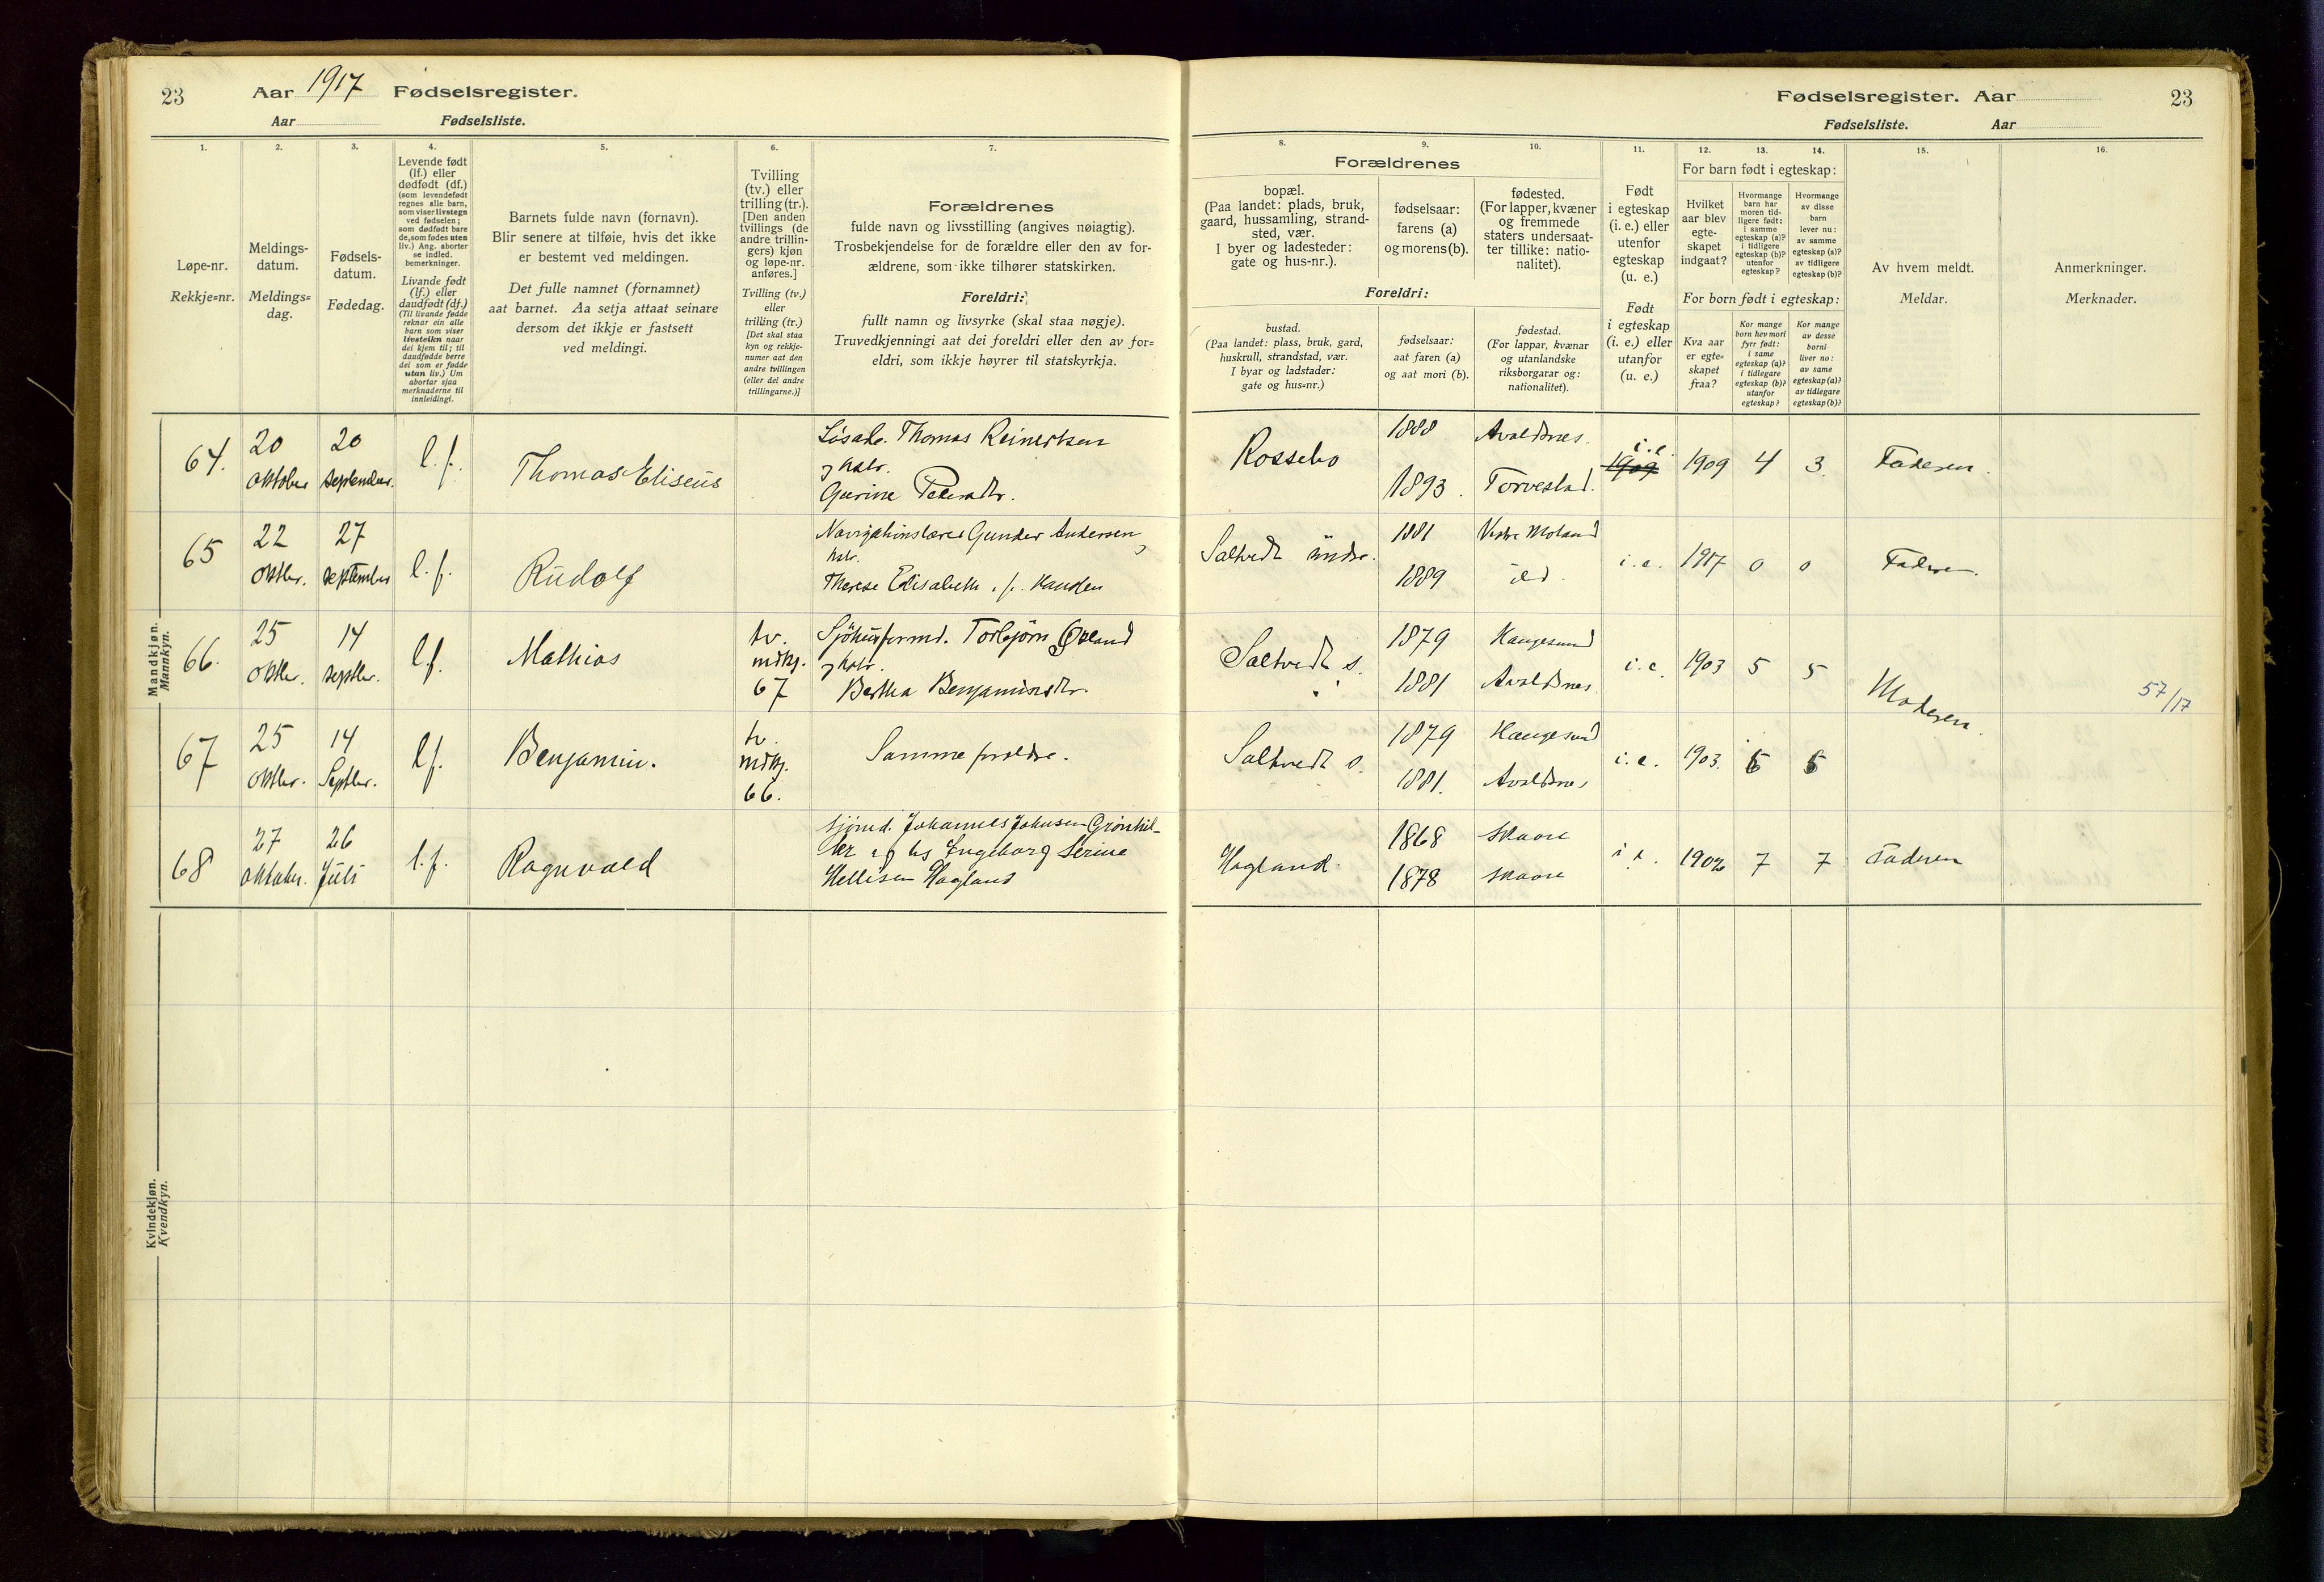 23
Aar 1917 Fødselsregister.
Aar Fødselsliste.
Fødselsregister. Aar
23
Fødselsliste. Aar
1.
Løpe-nr.
Rekkje=nr.
2.
Meldings-
datum.
Meldings=
dag.
3.
Fødsels-
datum.
Fødedag.
4.
Levende født
(lf.) eller
dødfødt (df.)
(som levendefødt
regnes alle barn,
som viser livstegn
ved fødselen;
som dødfødt bare
de, som fødes uten
liv.) Ang. aborter
se indled.
bemerkninger.
Livande født
(lf.) eller
daudfødt (df.)
(Til livande fødde
reknar ein alle
barn som viser
livsteikn naar
dei kjem til; til
daudfødde berre
dei som er fødde
utan liv.) Um
abortar sjaa
merknaderne til
innleidingi.
5.
Barnets fulde navn (fornavn).
Blir senere at tilføie, hvis det ikke
er bestemt ved meldingen.
Det fulle namnet (fornamnet)
aat barnet. Aa setja attaat seinare
dersom det ikkje er fastsett
ved meldingi.
6.
Tvilling
(tv.) eller
trilling (tr.).
[Den anden
tvillings (de
andre trillin-
gers) kjøn
og løpe-nr.
anføres.]
Tvilling (tv.)
eller
trilling (tr.)
[Det skal staa
kyn og rekkje-
numer aat den
andre tvillingen
(eller dei andre
trillingarne.)]
7.
Forældrenes
fulde navn og livsstilling (angives nøiagtig).
Trosbekjendelse for de forældre eller den av for-
ældrene, som ikke tilhører statskirken.
Foreldri:
fullt namn og livsyrke (skal staa nøgje).
Truvedkjenningi aat dei foreldri eller den av for=
eldri, som ikkje høyrer til statskyrkja.
Forældrenes
8.
bopæl.
(Paa landet: plads, bruk,
gaard, hussamling, strand-
sted, vær.
I byer og ladesteder:
gate og hus-nr.).
Foreldri:
bustad.
(Paa landet: plass, bruk, gard,
huskrull, strandstad, vær.
I byar og ladstader:
gate og hus=nr.)
9.
fødselsaar:
farens (a)
og morens (b).
fødselsaar:
aat faren (a)
og aat mori (b).
10.
fødested.
(For lapper, kvæner
og fremmede
staters undersaat-
ter tillike: natio-
nalitet).
fødestad.
(For lappar, kvænar
og utanlandske
riksborgarar og:
nationalitet).
11.
Født
i egteskap
(i. e.) eller
utenfor
egteskap
(u. e.)
Født
i egteskap
(i. e.) eller
utanfor
(u. e.)
For barn født i egteskap:
12.
Hvilket
aar blev
egte-
skapet
indgaat?
13.
Hvormange
barn har
moren tid-
ligere født:
i samme
egteskap (a)?
i tidligere
egteskap (b)?
utenfor
egteskap?
14.
Hvormange
av disse
barn
lever nu:
av samme
egteskap (a)?
av tidligere
egteskap (b)?
For born født i egteskap:
Kva aar
er egte=
skapet
fraa?
Kor mange
born hev mori
fyrr født:
i same
egteskap (a)?
i tidlegare
egteskap (b)?
utanfor
egteskap?
Kor mange
av desse
borni
liver no:
av same
egteskap (a)?
av tidlegare
egteskap (b)?
15.
Av hvem meldt.
Meldar.
16.
Anmerkninger.
Merknader.
Mandkjøn.
Mannkyn.
64. 20 oktober 20 september. l. f. Thomas Eliseus
Thomas Reinertsen
Gurine
Rossebo 1888 Avaldsnes.
1893. Torvestad.
i. e. 1909 1909 4 3. Faderen.
65 22 oktbr. 27 september l. f. Rudolf
Navigationslærer Gunder Andersen
hstr.
Therese Elisabeth, f.
1881 Vestre Moland
1889
i. e. 1917 0 0 Faderen.
66. 25 oktbr. 14 septbr. l. f. Mathias
tv.
mdkj.
67
Torbjørn
Bertha Benjaminsdtr.
Saltvedt s. 1879 Haugesund
1881 Avaldsnes
i. e 1903 5 5 Moderen. 57/17
67 25 oktbr. 14 Septbr. l. f. Benjamin.
tv.
mdkj.
66.
Samme foreldre.
Saltvedt s. 1879 Haugesund
1881. Avaldsnes
i. e. 1903.
68 27 oktober. 26 Juli l. f. Ragnvald
sjømd. Johannes Johnsen
Ingeborg Serine
Hellisen Hagland
Hagland. 1868 Skaare
1878 Skaare
i e. 7 7 Faderen
Kvindekjøn.
Kvendkyn.